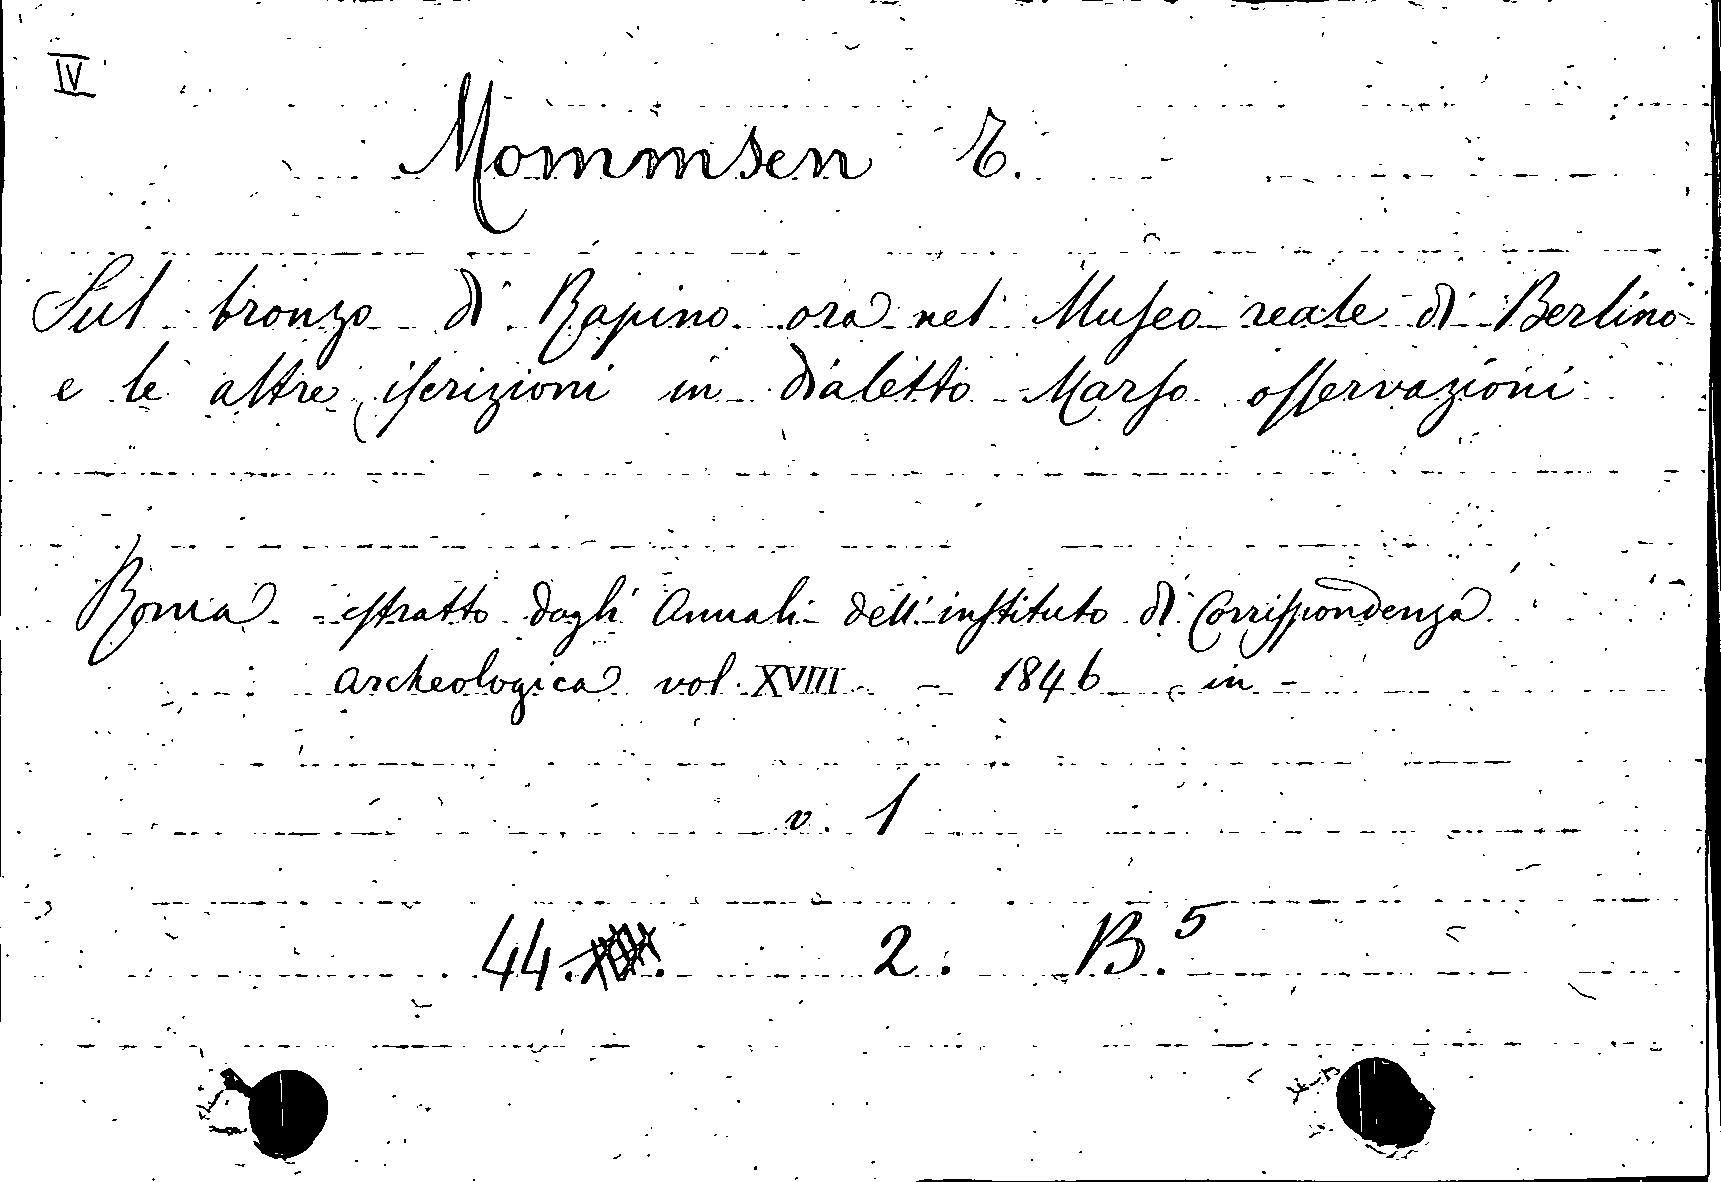 IV
Mommsen T.
Sul bronzo di Rapino ora nel Museo reale di Berlino
e le altre iscrizioni in dialetto Marso osservazioni
Roma estratto dagli Annali dell'instituto di Corrispondenza
archeologica vol. XVIII - 1846 in -
v. 1
44. 2. B.5